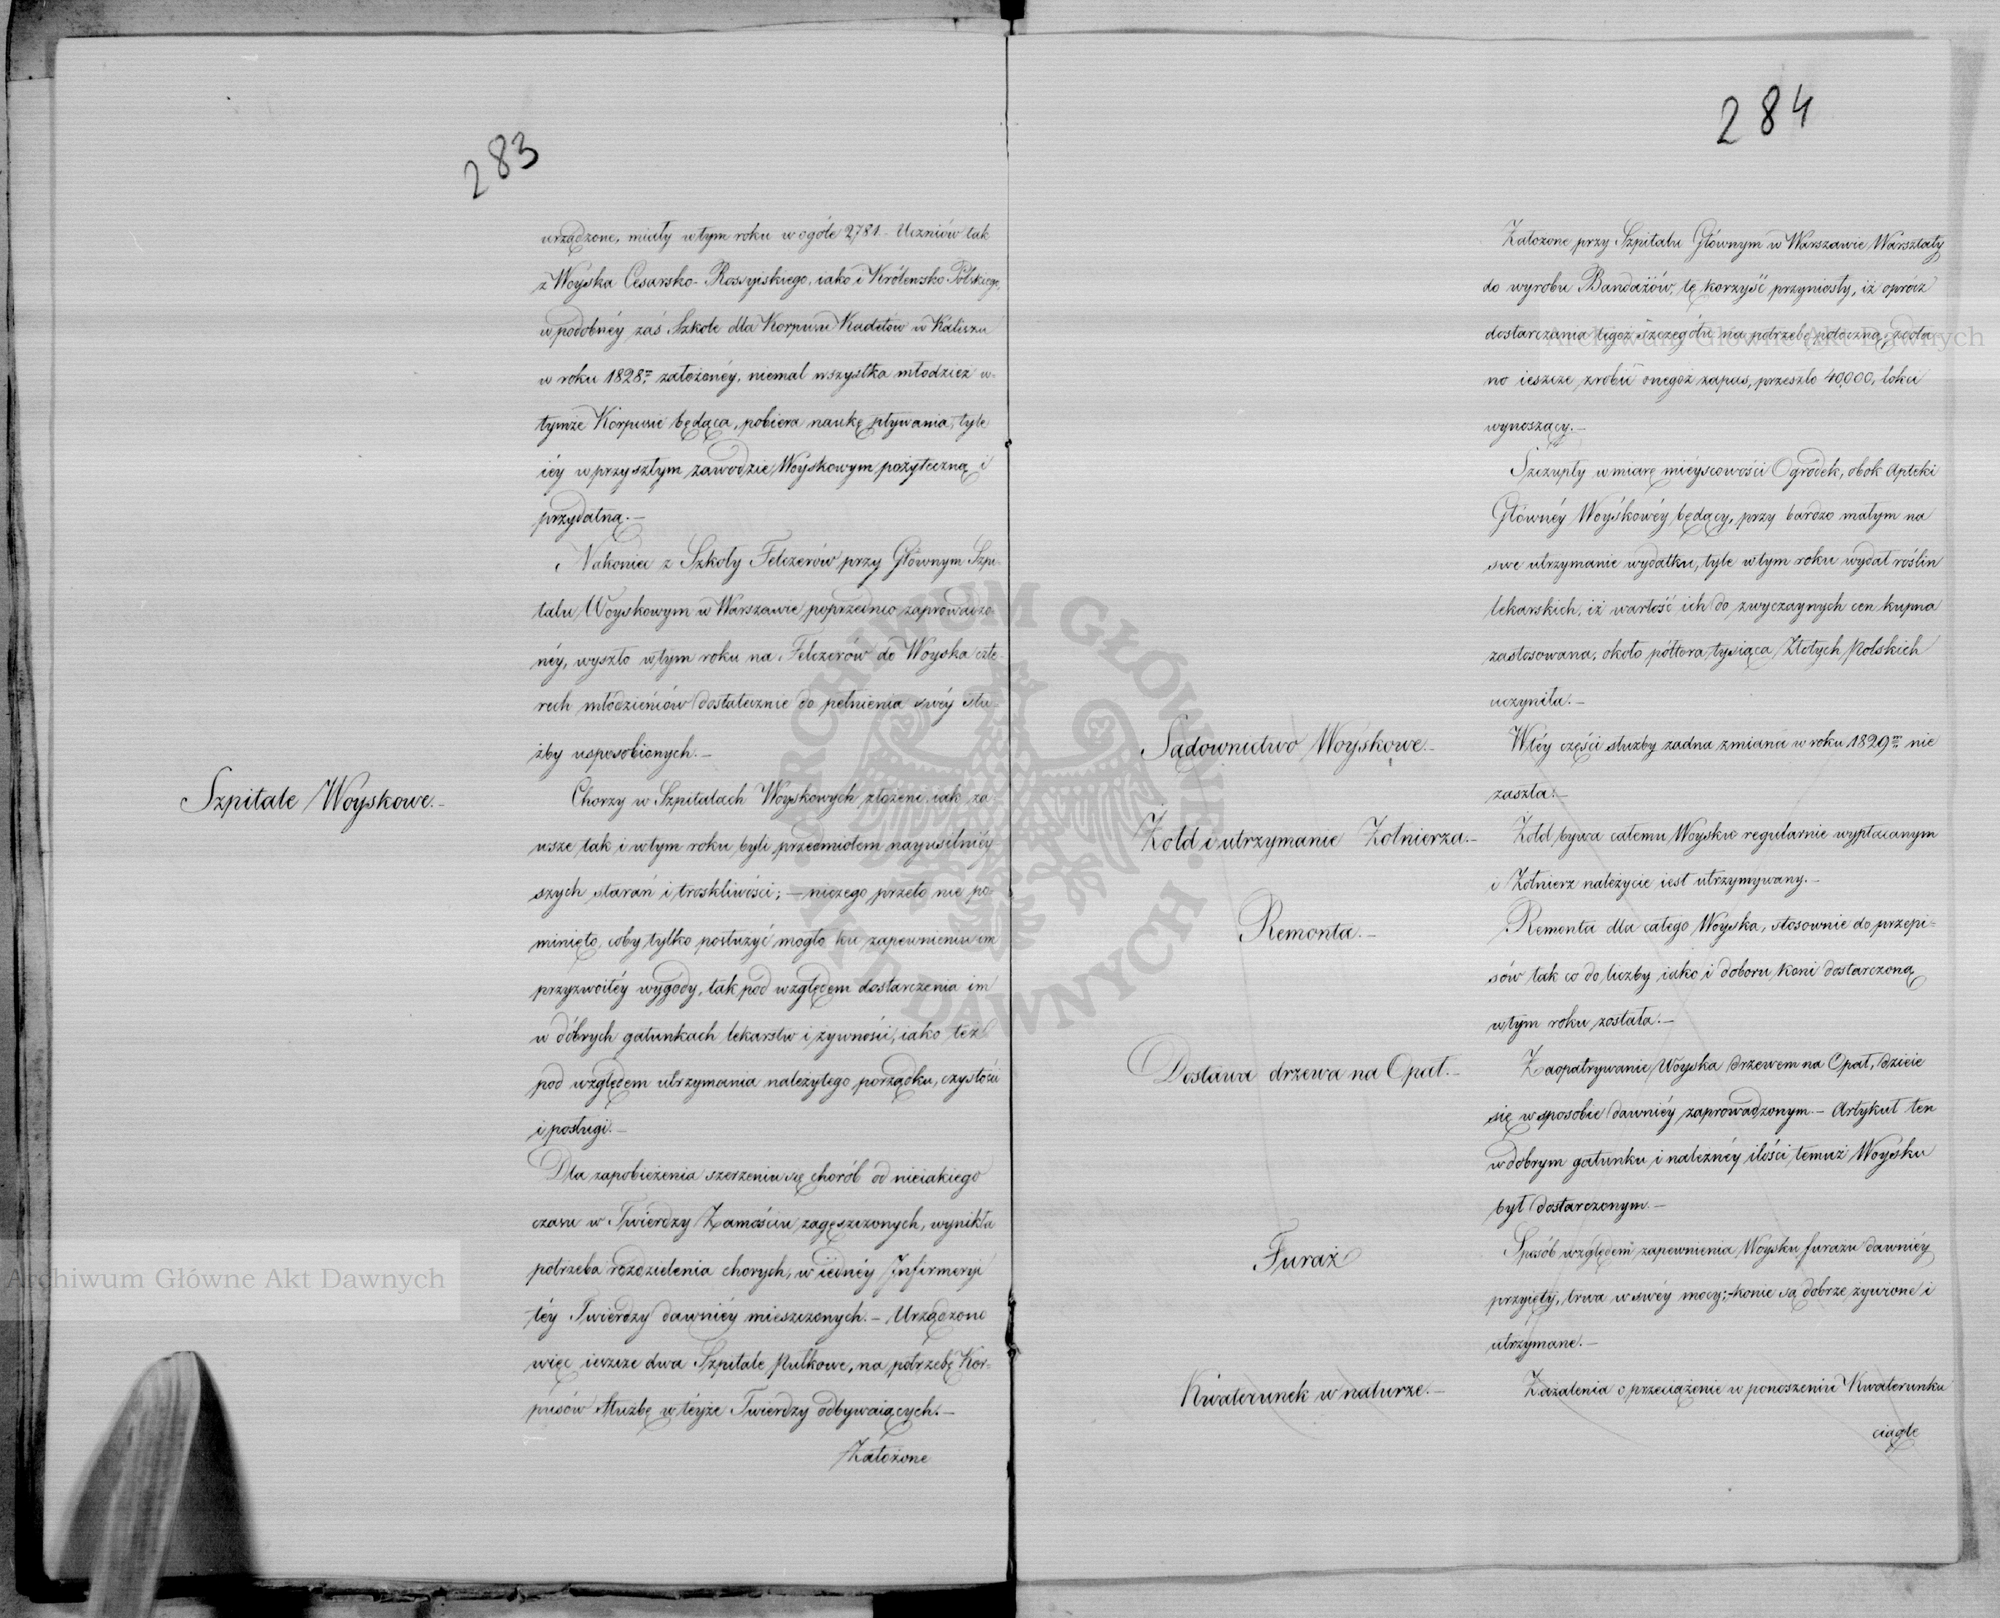 283
urządzone, miały w tym roku w ogóle 2781 Uczniów tak
z Woyska Cesarsko-Rossyiskiego, iako i Królewsko Polskiego,
w podobnéy zaś Szkole dla Korpusu Kadetów w Kaliszu
w roku 1828m założonéy, niemal wszystka młodzież w
tymże Korpusie będąca, pobiera naukę pływania, tyle
iéy w przyszłym zawodzie Woyskowym pożyteczną i
przydatną.—
Nakoniec z Szkoły Felczerów przy Głównym Szpi-
talu Woyskowym w Warszawie poprzednio zaprowadzo-
néy, wyszło w tym roku na Felczerów do Woyska czte-
rech młodzieńców dostatecznie do pełnienia swéy słu-
żby usposobionych.—
Szpitale Woyskowe.—
Chorzy w Szpitalach Woyskowych złożeni iak za-
wsze tak i w tym roku byli przedmiotem nayusilniéy-
szych starań i troskliwości; — niczego przeto nie po-
minięto, coby tylko posłużyć mogło ku zapewnieniu im
przyzwoitéy wygody, tak pod względem dostarczenia im
w dobrych gatunkach lekarstw i żywności, iako też
pod względem utrzymania należytego porządku, czystości
i posługi.—
Dla zapobieżenia szerzeniu się chorób od nieiakiego
czasu w Twierdzy Zamościu zagęszczonych, wynikła
potrzeba rozdzielenia chorych, w iednéy Infirmeryi
téy Twierdzy dawniéy mieszczonych.— Urządzono
więc ieszcze dwa Szpitale Pułkowe, na potrzebę Kor-
pusów służbę w téyże Twierdzy odbywaiących.—
Założone
284
Założone przy Szpitalu Głównym w Warszawie Warsztaty
do wyrobu Bandażów, tę korzyść przyniosły, iż oprócz
dostarczania tegoż szczegółu na potrzebę potoczną, zdoła-
no ieszcze zrobić onegoż zapas, przeszło 40,000, łokci
wynoszący.—
Szczupły w miarę mieyscowości Ogródek, obok Apteki
Głównéy Woyskowéy będący, przy bardzo małym na
swe utrzymanie wydatku, tyle w tym roku wydał roślin
lekarskich, iż wartość ich do zwyczaynych cen kupna
zastosowana, około półtora tysiąca Złotych Polskich
uczyniła.—
Sądownictwo Woyskowe.—
W téy części służby żadna zmiana w roku 1829m nie
zaszła.—
Żołd i utrzymanie Żołnierza.—
Żołd bywa całemu Woysku regularnie wypłacanym
i Żołnierz należycie iest utrzymywany.—
Remonta.—
Remonta dla całego Woyska, stosownie do przepi-
sów tak co do liczby iako i doboru koni dostarczoną
w tym roku została.—
Dostawa drzewa na Opał.—
Zaopatrywanie Woyska drzewem na Opał, dzieie
się w sposobie dawniéy zaprowadzonym.— Artykuł ten
w dobrym gatunku i należnéy ilości temuż Woysku
był dostarczonym.—
Furaż
Sposób względem zapewnienia Woysku furażu dawniéy
przyięty, trwa w swéy mocy;— konie są dobrze żywione i
utrzymane.—
Kwaterunek w naturze.—
Zażalenia o przeciążenie w ponoszeniu Kwaterunku
ciągłe
Archiwum Główne Akt Dawnych
Archiwum Główne Akt Dawnych
ARCHIWUM GŁÓWNE AKT DAWNYCH